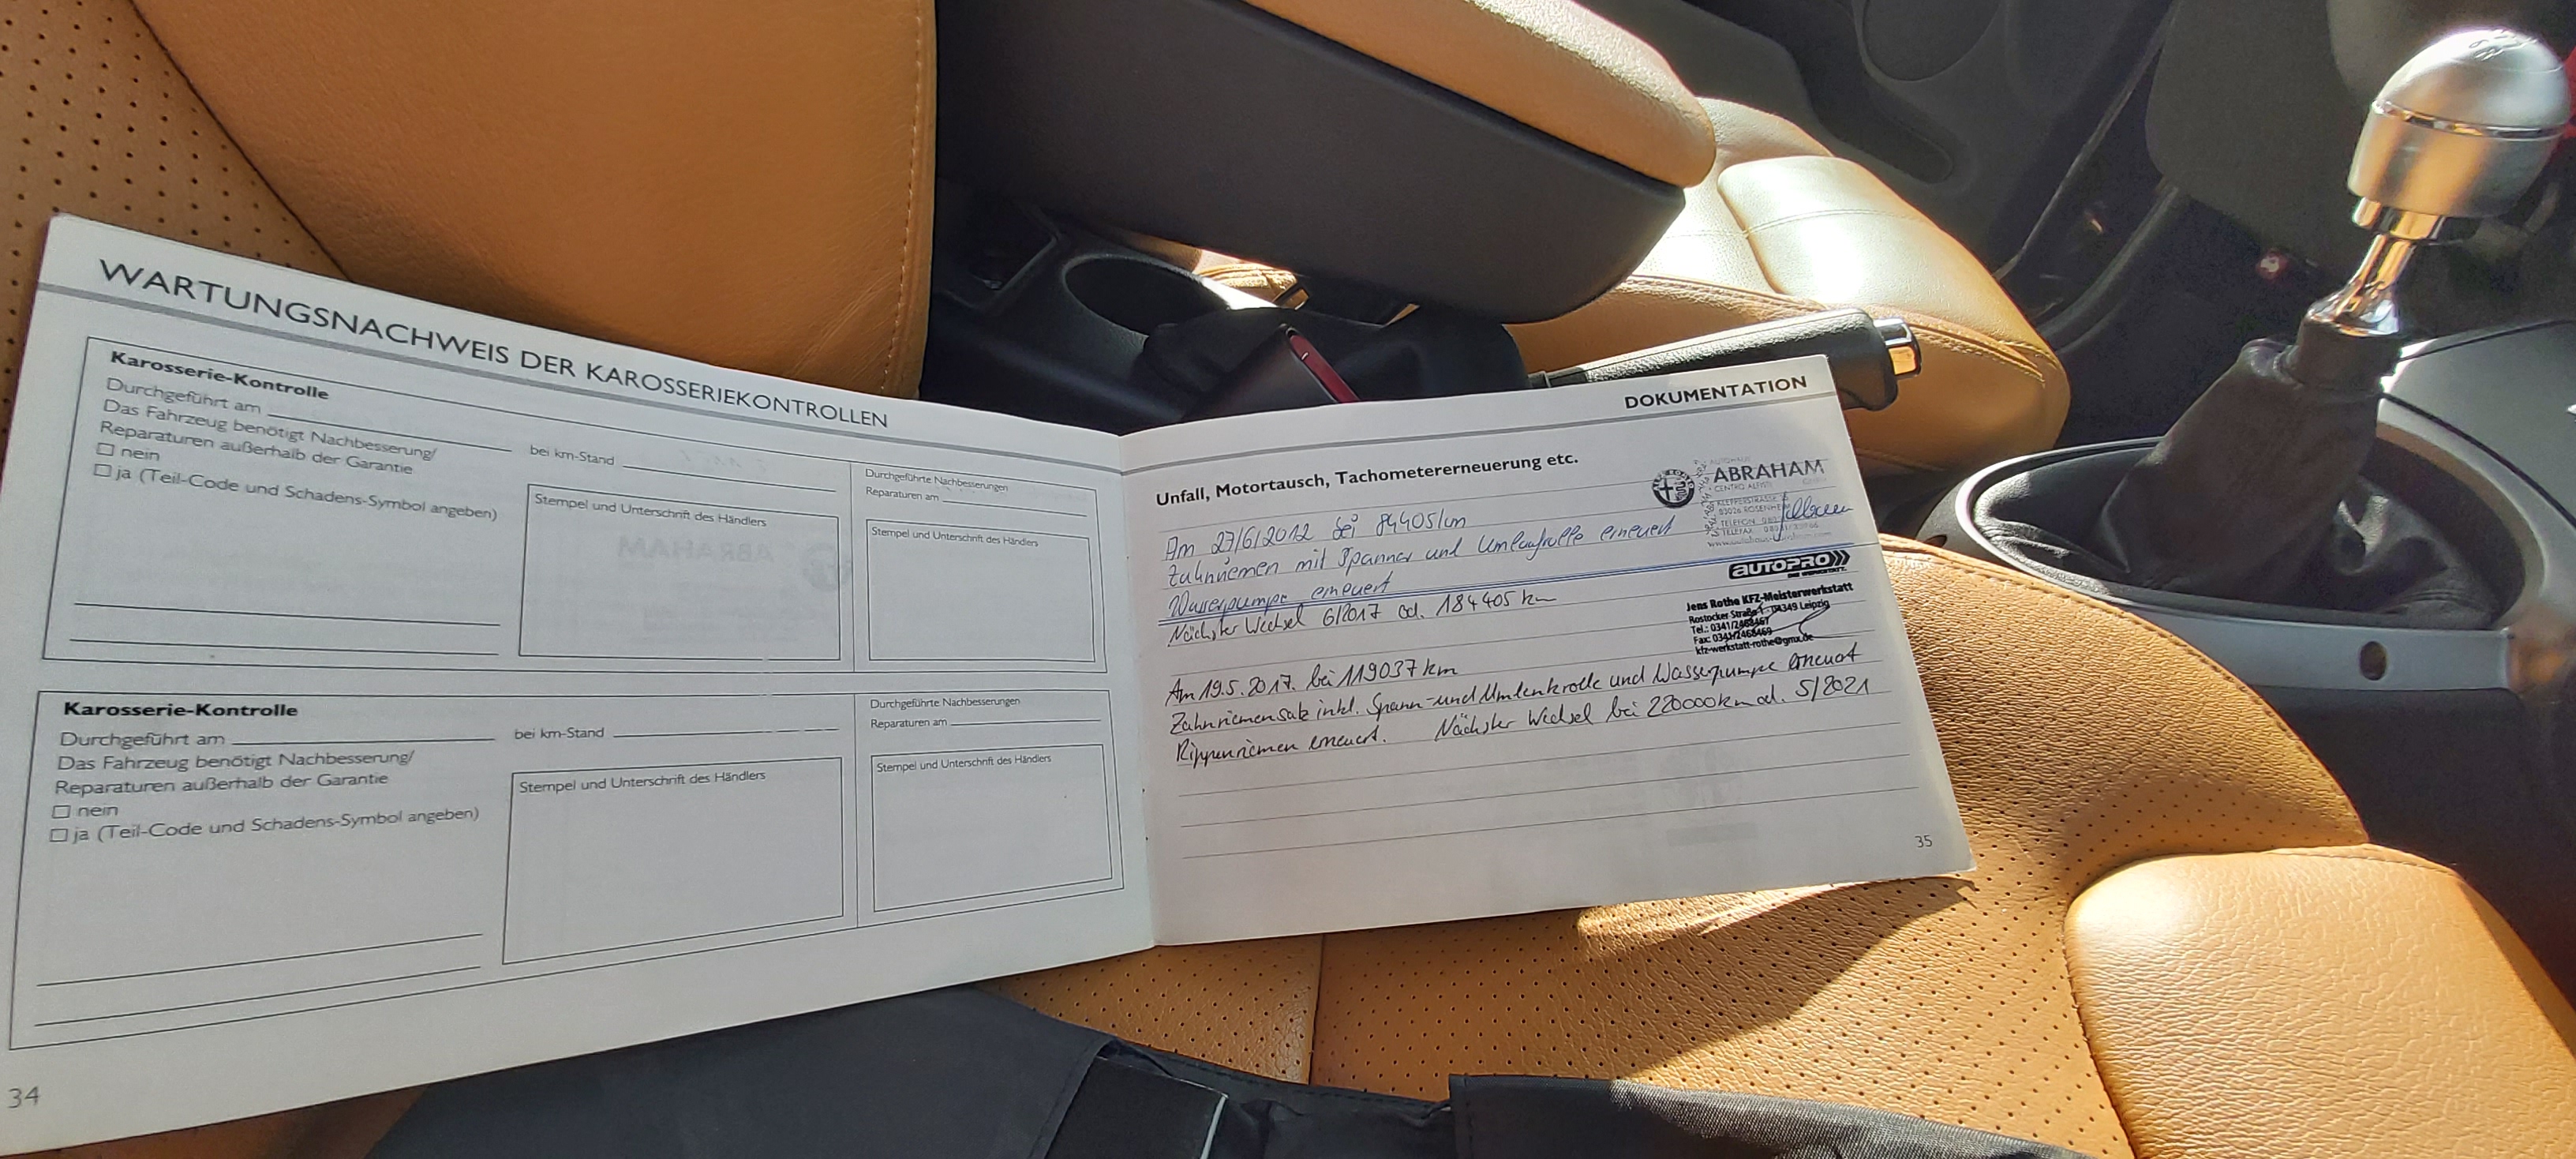 WARTUNGSNACHWEIS DER KAROSSERIEKONTROLLEN
Karosserie-Kontrolle
Durchgeführt am
bei km-Stand
Das Fahrzeug benötigt Nachbesserung/
Reparaturen außerhalb der Garantie
nein
ja (Teil-Code und Schadens-Symbol angeben)
Stempel und Unterschrift des Händlers
Durchgeführte Nachbesserungen
Reparaturen am
Stempel und Unterschrift des Händlers
Karosserie-Kontrolle
Durchgeführt am
bei km-Stand
Das Fahrzeug benötigt Nachbesserung/
Reparaturen außerhalb der Garantie
nein
ja (Teil-Code und Schadens-Symbol angeben)
Stempel und Unterschrift des Händlers
Durchgeführte Nachbesserungen
Reparaturen am
Stempel und Unterschrift des Händlers
34
DOKUMENTATION
Unfall, Motortausch, Tachometererneuerung etc.
AUTOHAUS
ABRAHAM
CENTRO ALFISTI
KLEPPERSTRASSE
83026 ROSENHEIM
TELEFON
TELEFAX
Am 27/6/2012 bei 84405km
Zahnriemen mit Spanner und Umlaufrolle erneuert
Wasserpumpe erneuert
Nächster Wechsel 6/2017 od. 184405 km
AUTOPRO
DIE WERKSTATT.
Jens Rothe KFZ-Meisterwerkstatt
Rostocker Straße 1 · 04349 Leipzig
Tel.: 0341/2468467
Fax: 0341/2468469
kfz-werkstatt-rothe@gmx.de
Am 19.5.2017. bei 119037 km
Zahnriemensatz inkl. Spann- und Umlenkrolle und Wasserpumpe erneuert
Rippenriemen erneuert. Nächster Wechsel bei 220000km od. 5/2021
35